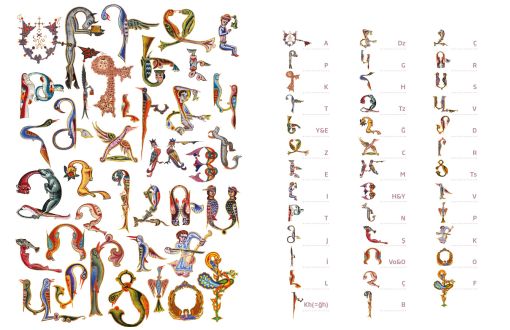 A
P
K
T
Y&E
Z
E
I
T
J
İ
L
Kh(=ğh)
Dz
G
H
Tz
Ğ
C
M
H&Y
N
Ş
Vo&O
Ç
B
Ç
R
S
V
D
R
Ts
V
P
K
O
F